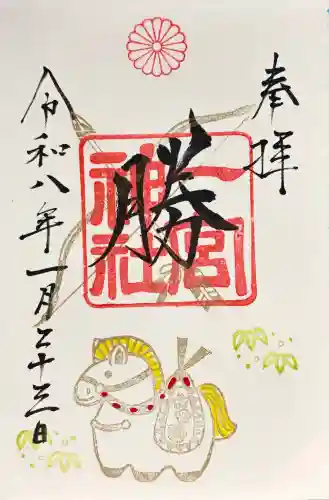 奉拝
勝
一宮
神社
令和八年一月二十三日